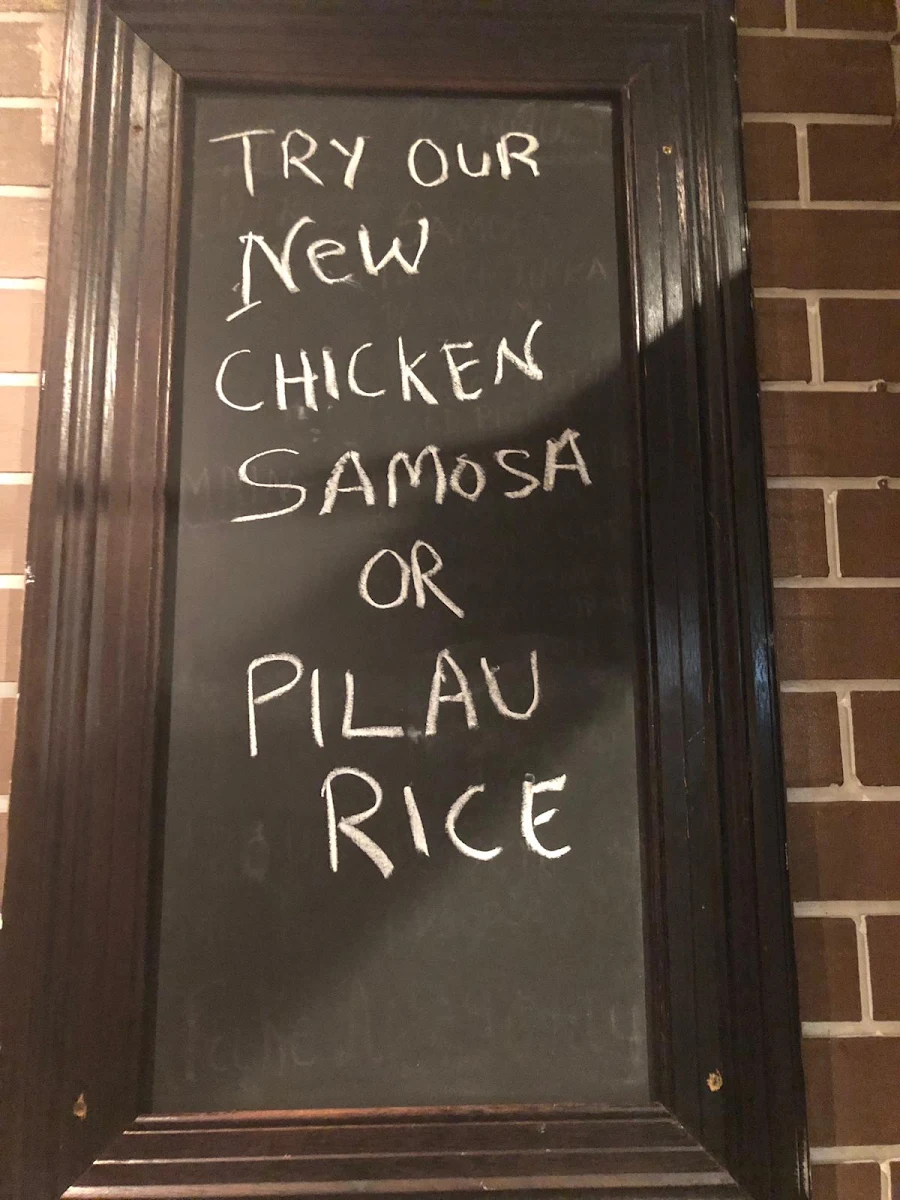 TRY OUR
NeW
CHICKEN
SAMOSA
OR
PILAU
RICE